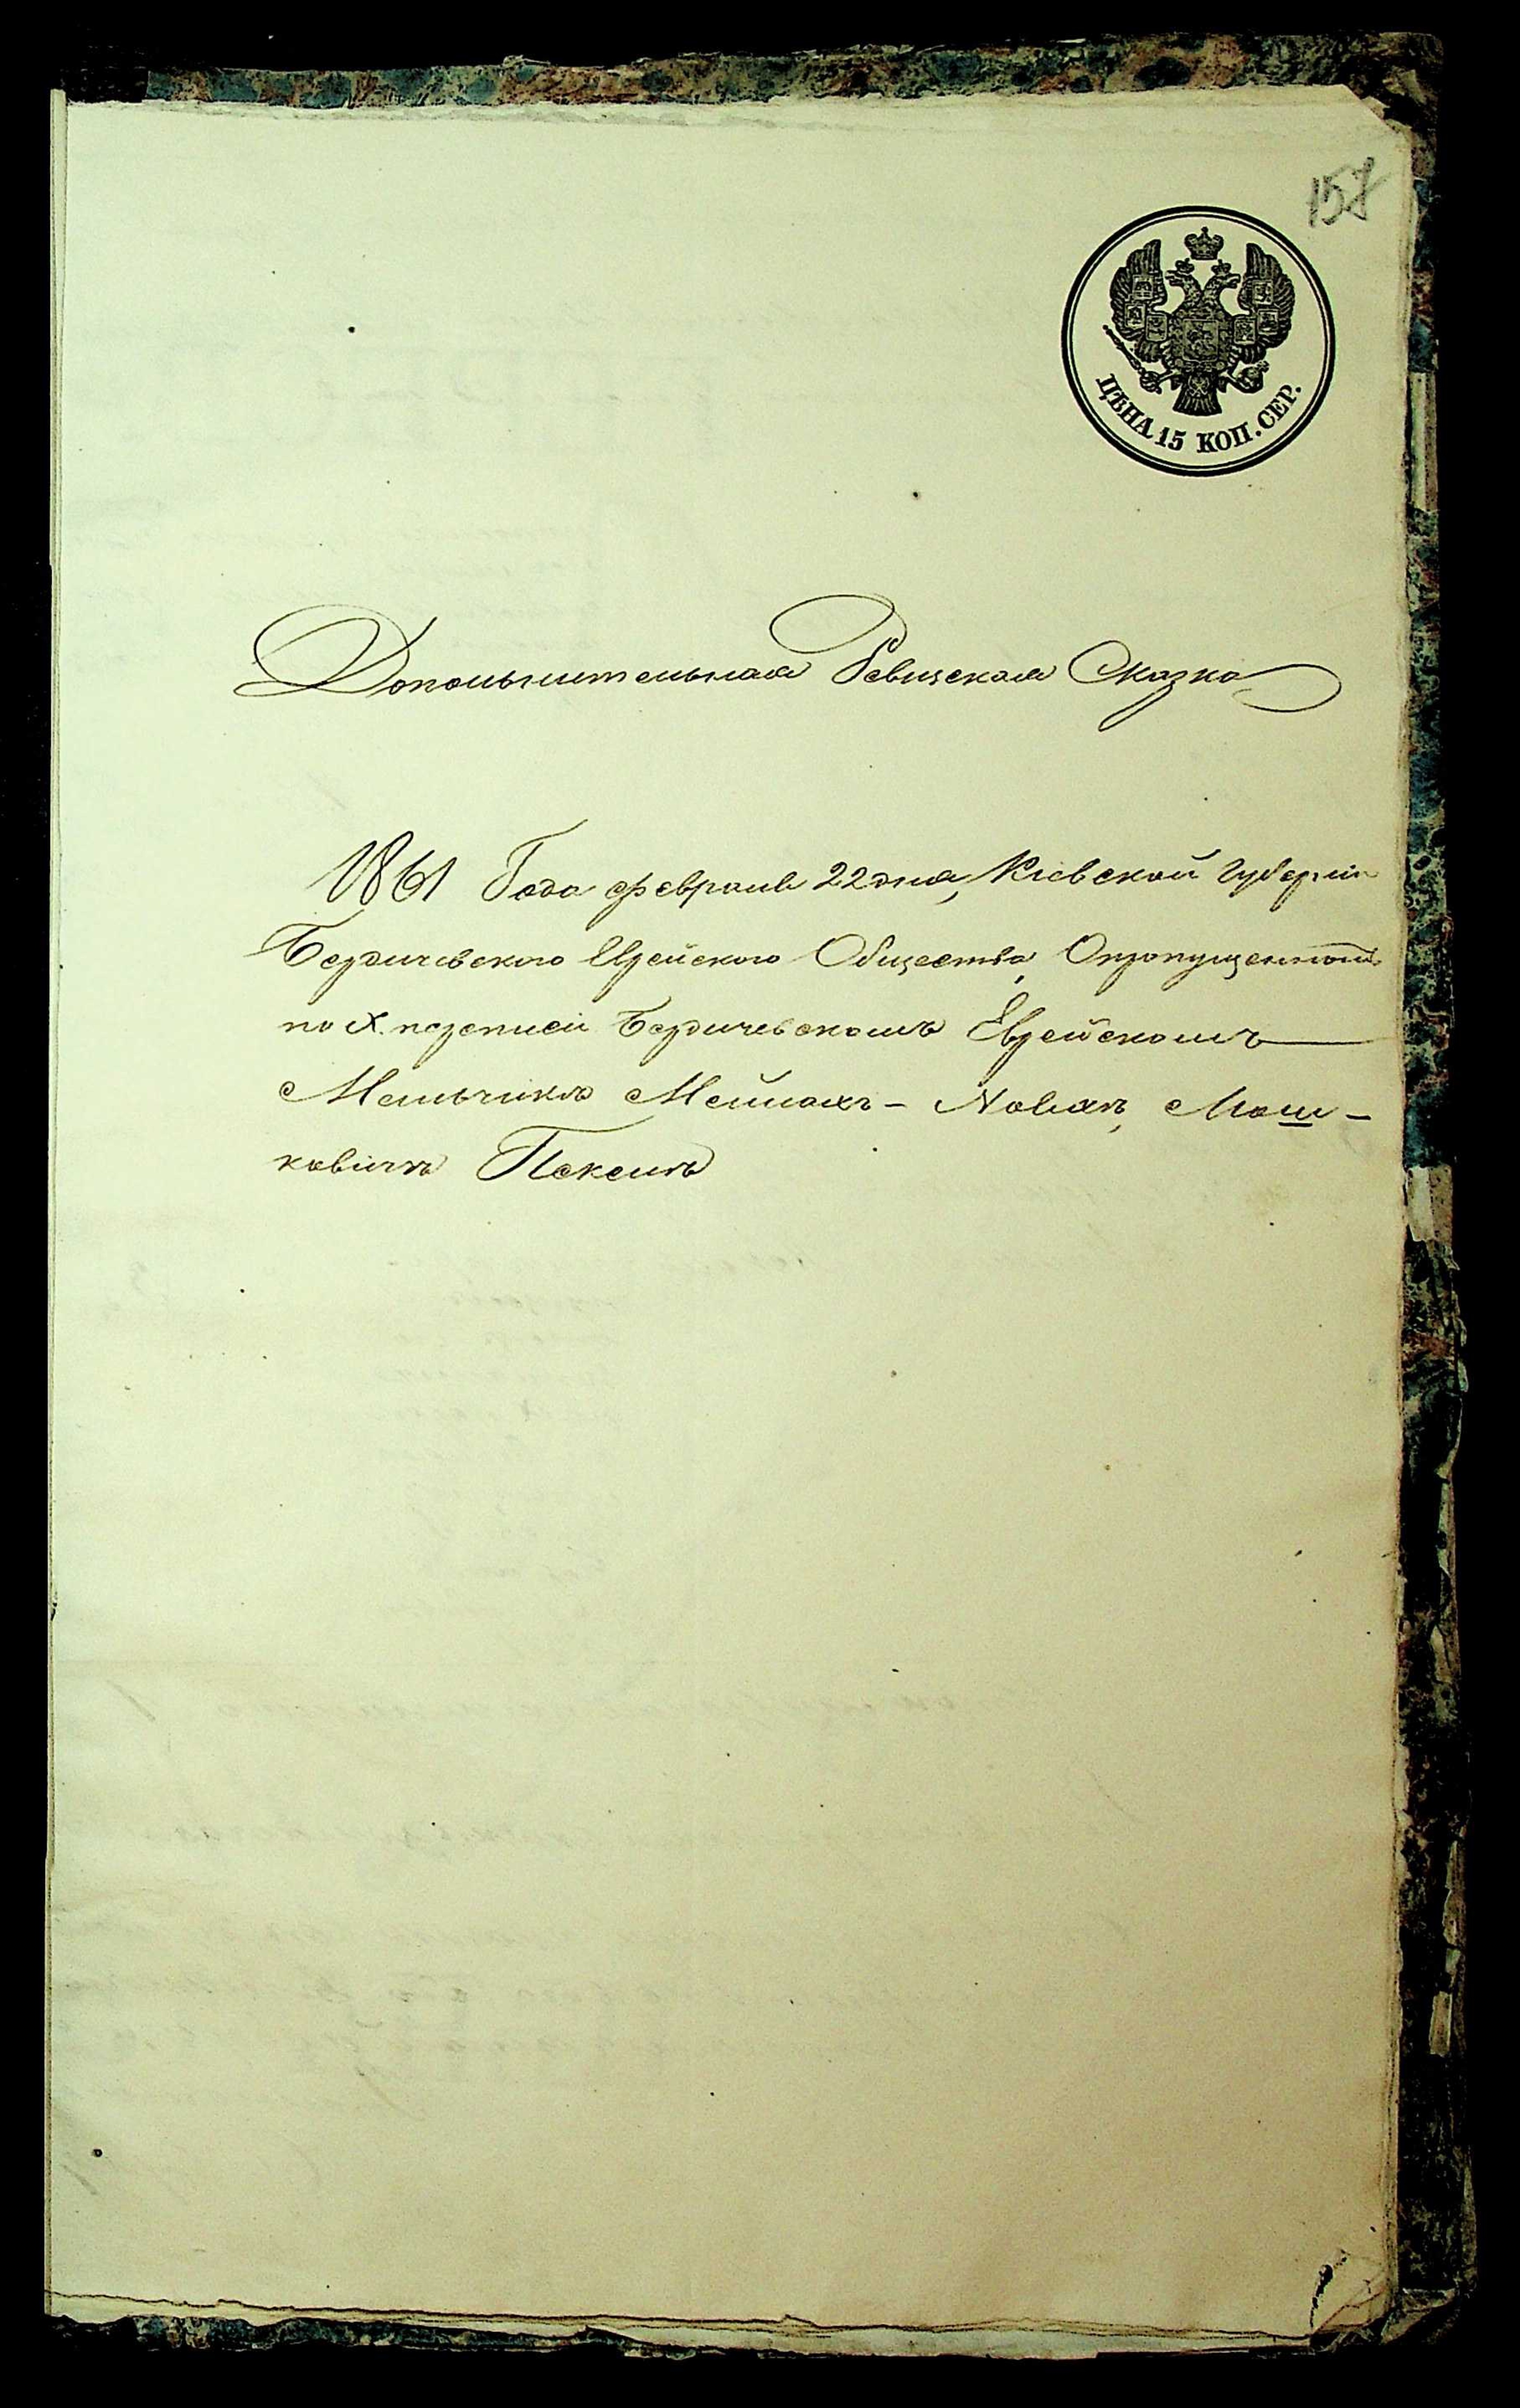 157
ЦѢНА 15 КОП. СЕР.
Дополнительная Ревизская Сказка
1861 Года февраля 22 дня, Кіевской Губерніи
Бердичевского Еврейского Общества, О пропущенномъ
по X. переписи Бердичевскомъ Еврейскомъ
Мейлахъ - Мош-
ковичъ